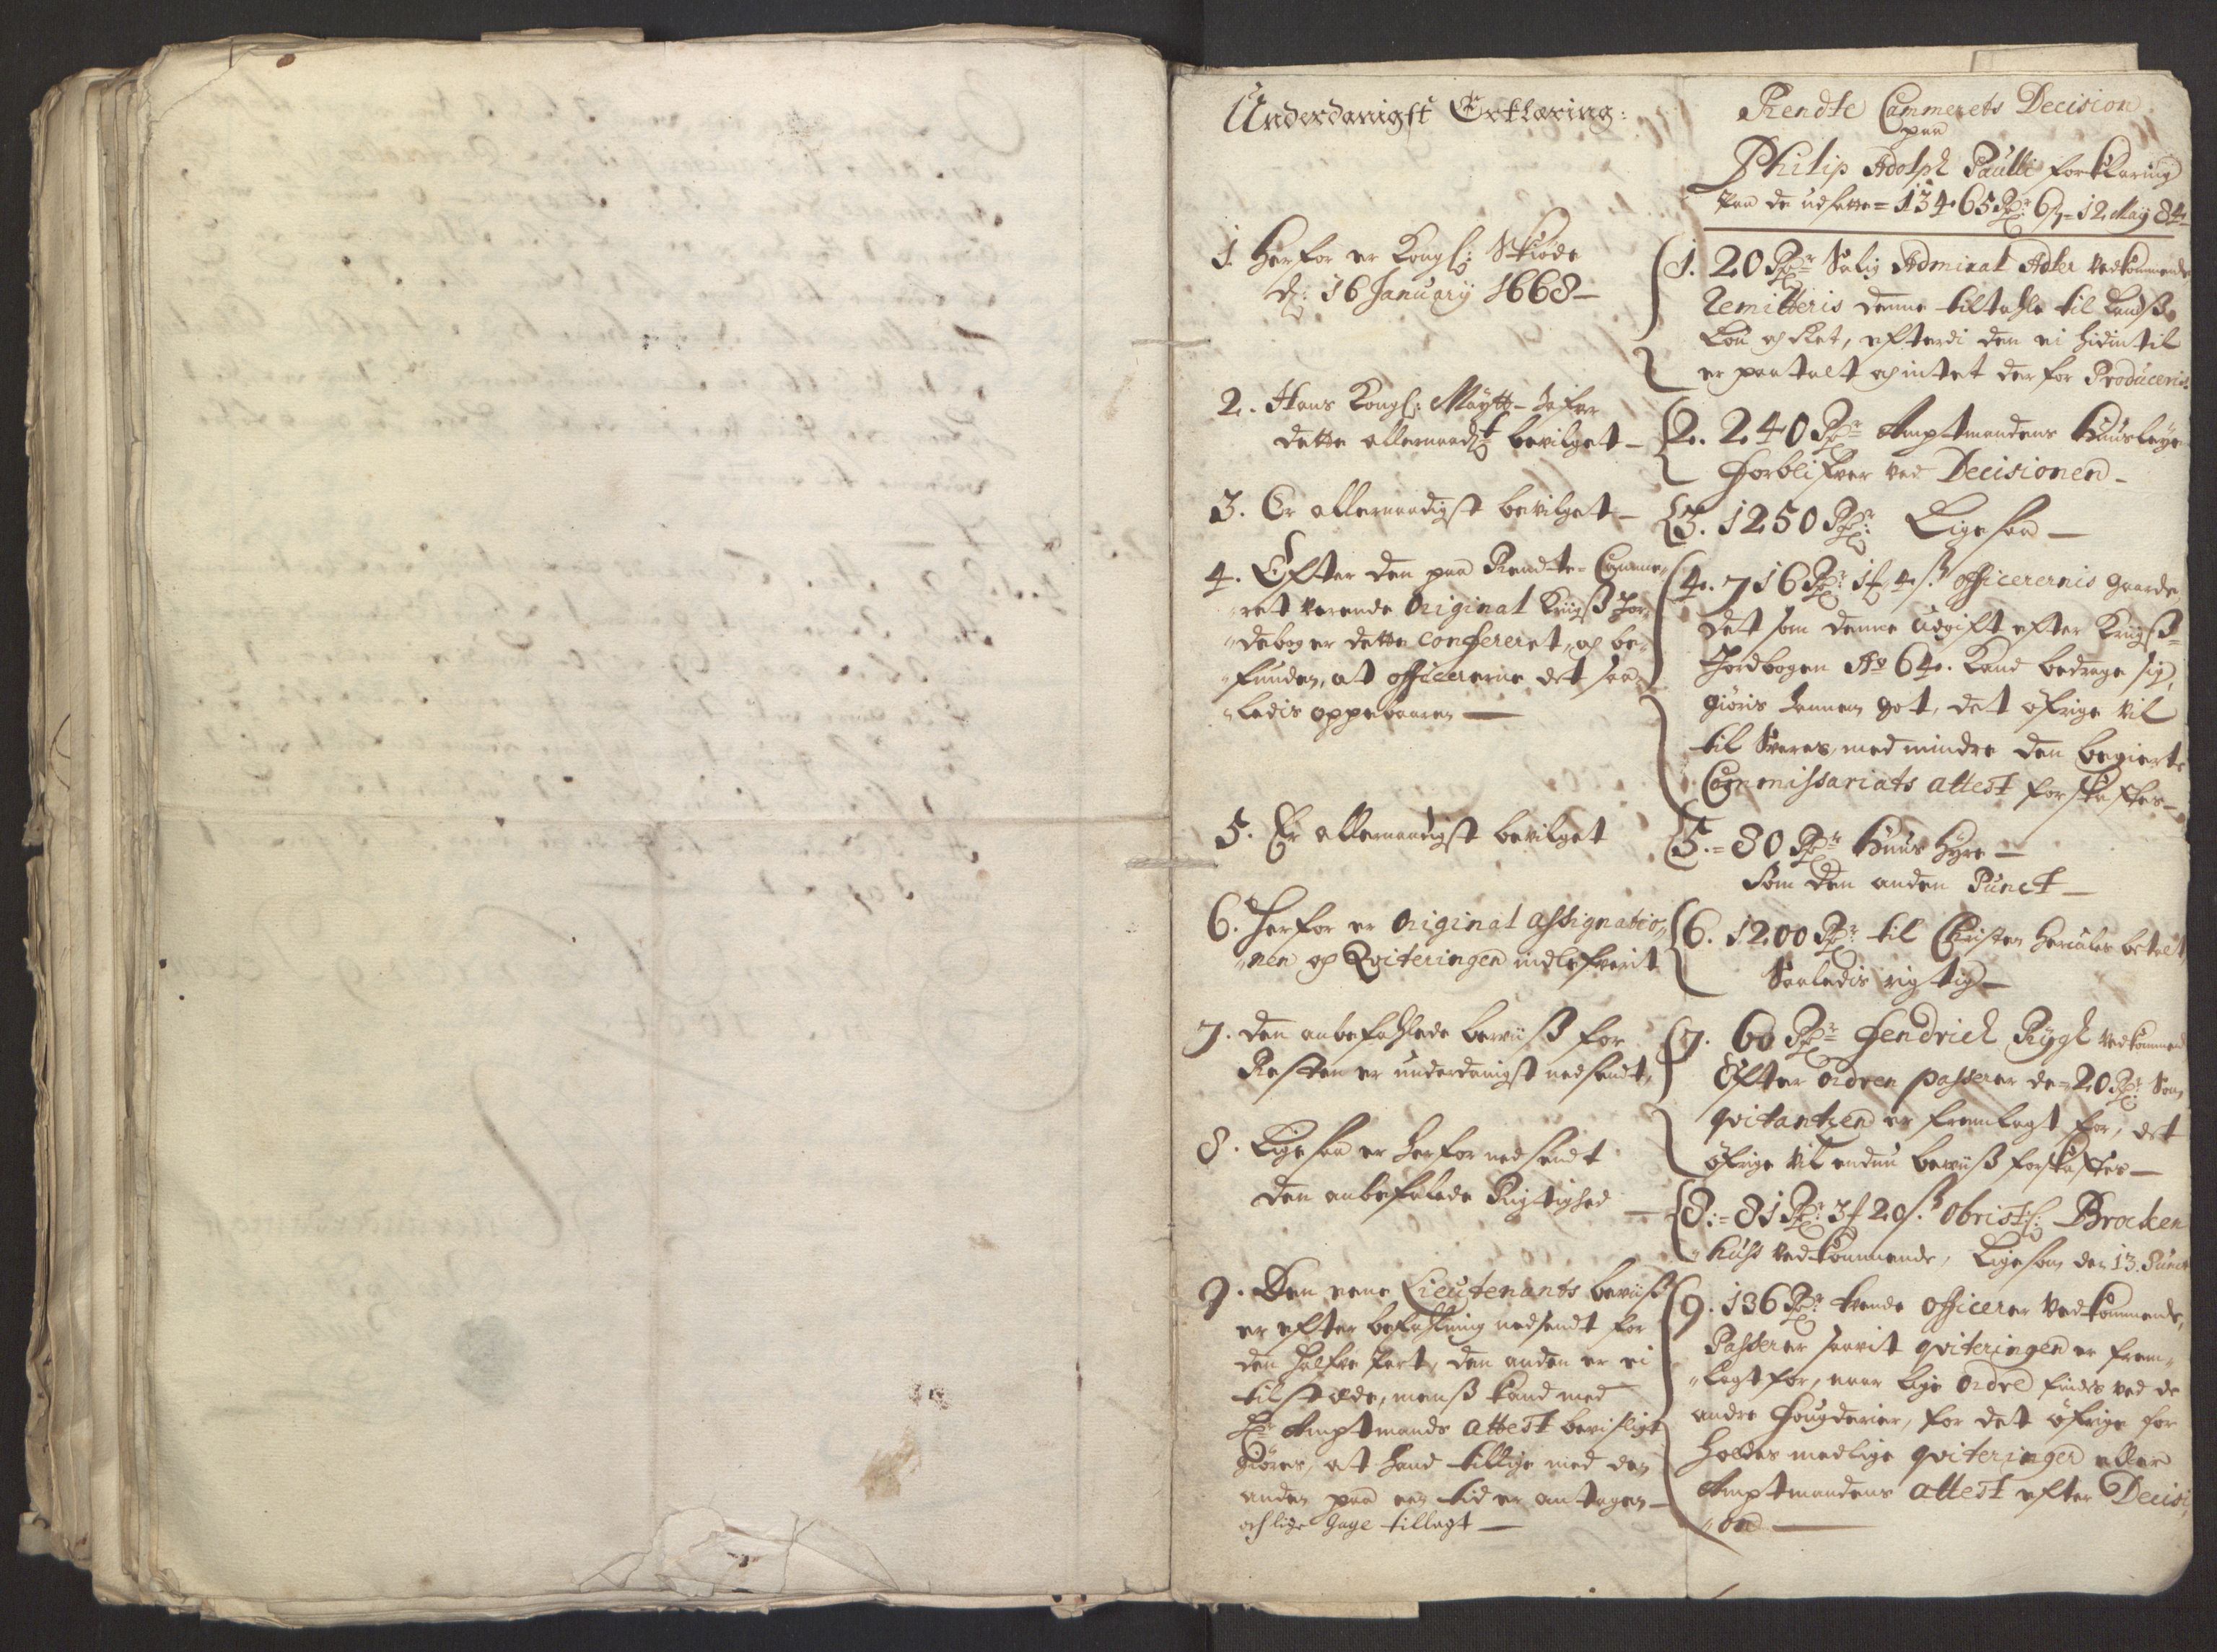 Underdanigst Erklæring:
1. Herfor er Kongl: Skiøde
d: 16 January 1668 –
2. Hans Kongl: Mäÿtt- hafer
dette allernaadst bevilget –
3. Er allernaadigst bevilget –
4. Efter den paa Rendte-Camme„
„ret værende Original Krigs Jor„
„debog er dette confereret, och be„
„funden, at officererne det saa„
„ledis oppebaaren –
5. Er allernaadigst bevilget
6. Herfor er Original assignatio„
„nen och Qviteringen indlefverit
7. den anbefahlede beviiß for
Resten er underdanigst nedsendt,
8. Ligesaa er herfor nedsendt
den anbefalede Rigtighed –
9. Den eene Lieutenants beviiß
er efter befahlning nedsendt for
den halfve Part, den anden er ei
tilstæde, menß kand med
Hr Amptmands attest bevisligt
giøres, at hand tillige med den
anden paa een tid er antagen –
och lige gage tillagt –
Rendte Cammerets Decision
paa
Philip Adolph Paulli forklaring
Paa de udsatte = 13465 Rdr: 6 s = 12 May 84
1. 20 Rdr Salig Admiral Adler vedkommende
Remitteris denne tiltahle til Landß
Lou och Ret, efterdi den ei hidintil
er paatalt och intet derfor Produceris.
2. 240 Rdr Amptmandens Huusleye
forblifver ved Decisionen –
3. 1250 Rdr: Ligesaa –
4. 716 Rdr: 1 f 4 s: officerernis gaarde,
Det som denne Udgift efter Krigs-
Jordbogen Ao 64. Kand bedrage sig,
giøris hannem got, det öfrige vil
til Svares, med mindre den begierte
Commissariats attest forskaffes –
5. = 80 Rdr Huus Hyre –
Som den anden Punct –
6. 1200 Rdr: til Christen Hercules betalt,
Saaledis rigtig –
7. 60 Rdr fendrich Rygh vedkommend
Efter ordren passerer de = 20 Rdr: Som
qvitantzen er fremlagt for, det
öfrige vil endnu beviiß forskaffes –
8. = 81 Rdr: 3 f 20 s: Obristl: Brocken
„huss vedkommende, Ligesom den 13. Punct
9. 136 Rdr tvende officerer vedkommende,
Passerer saavit qviteringen er frem„
„lagt for, naar lige ordre findes ved de
andre fougderier, for det öfrige for
holdes med lige qviteringer eller
Amptmandens attest efter Decisi„
„on –